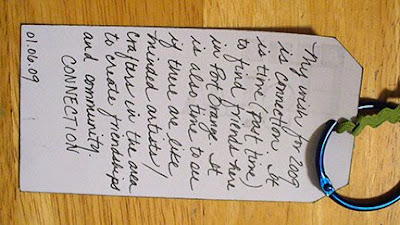 My wish for 2009
is connection. It
is time (past time)
to find friends here
in Port Orange. It
is also time to see
if there are like
minded artists/
crafters in the area
to create friendships
and community.
CONNECTION
01.06.09